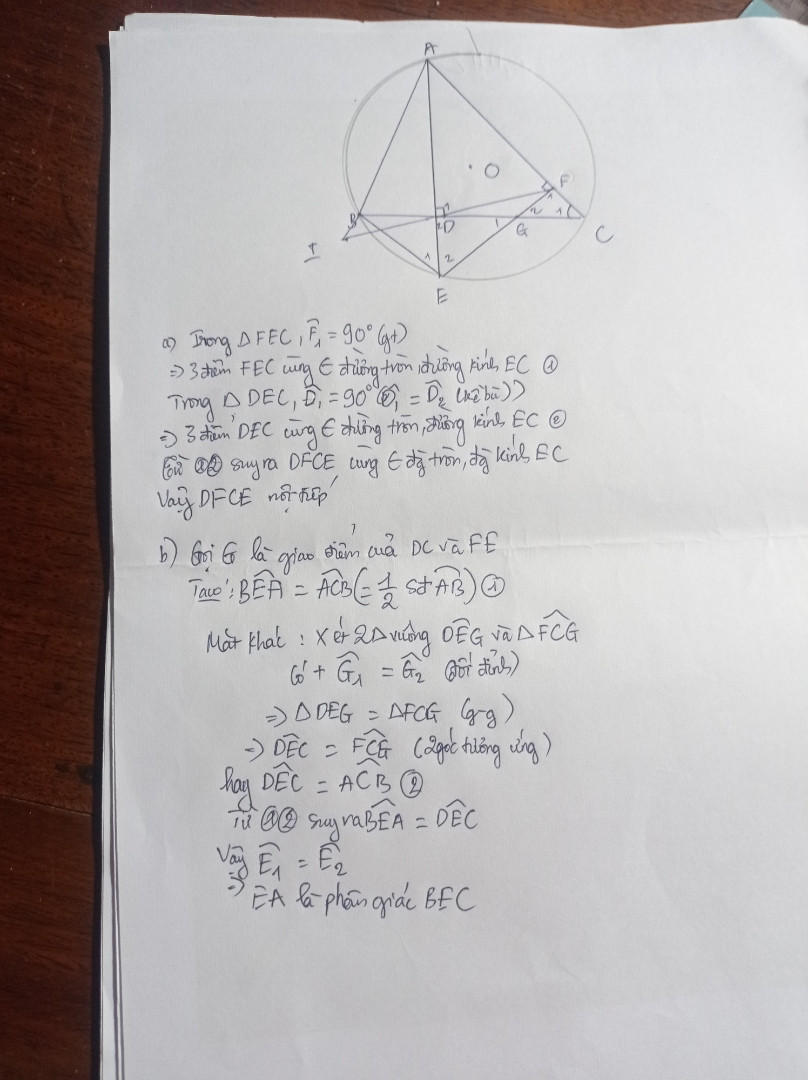 A
O
F
1
B
D
2
1
G
2
1
C
I
1
2
E
a) Trong △FEC, F̂₁ = 90° (gt)
=> 3 điểm FEC cùng ∈ đường tròn, đường kính EC ①
Trong △ DEC, D̂₁ = 90° (D̂₁ = D̂₂ (kề bù))
=> 3 điểm DEC cùng ∈ đường tròn, đường kính EC ②
Từ ①② suy ra DFCE cùng ∈ đg tròn, đg kính EC
Vậy DFCE nội tiếp
b) Gọi G là giao điểm của DC và FE
Ta có: BÊA = AĈB (= 1/2 sđ AB) ①
Mặt khác : Xét 2△ vuông DÊG và △FĈG
Có + Ĝ₁ = Ĝ₂ (đối đỉnh)
=> △ DEG = △FCG (g-g)
=> DÊC = FĈG (2 góc tương ứng)
hay DÊC = AĈB ②
Từ ①② suy ra BÊA = DÊC
Vậy Ê₁ = Ê₂
=> EA là phân giác BEC